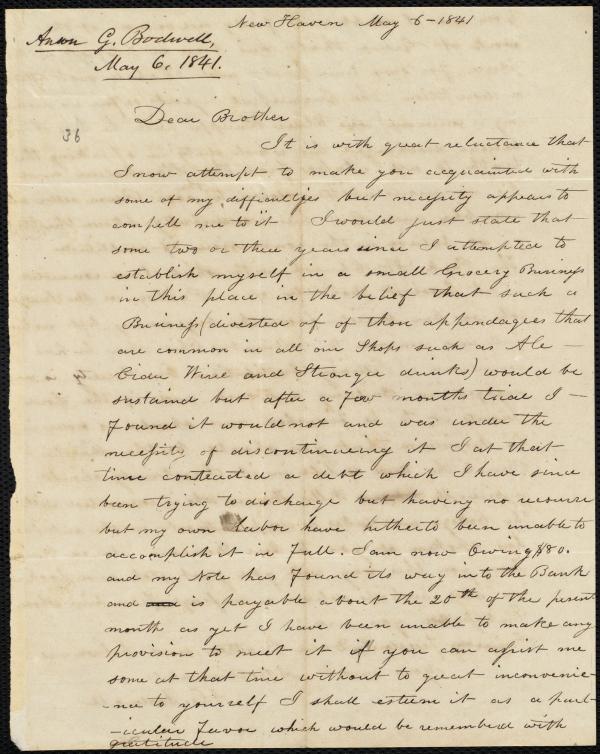 New Haven May 6-1841
Anson G. Bodwell,
May 6, 1841.
Dear Brother
36
It is with great reluctance that
I now attempt to make you acquainted with
some of my difficulties but necessity appears to
compell me to it I would just state that
some two or three years since I attempted to
establish myself in a small Grocery Business
in this place in the belief that such a
Business (divested of of thou appendagees that
are common in all our Shops such as Ale -
Cider Wine and Stronger drinks) would be
sustained but after a few months trial I -
found it would not and was under the
necessity of discontinueing it I at that
time contracted a debt which I have since
been trying to discharge but having no recourse
but my own labor have hitherto been unable to
accomplish it in full. I am now Owing $80.
and my Note has found its way into the Bank
and is payable about the 20th of the present
month as yet I have been unable to make any
provision to meet it if you can assist me
some at that time without to great inconvenie-
-nce to yourself I shall esteem it as a part-
-icular favor which would be remembered with
gratitude